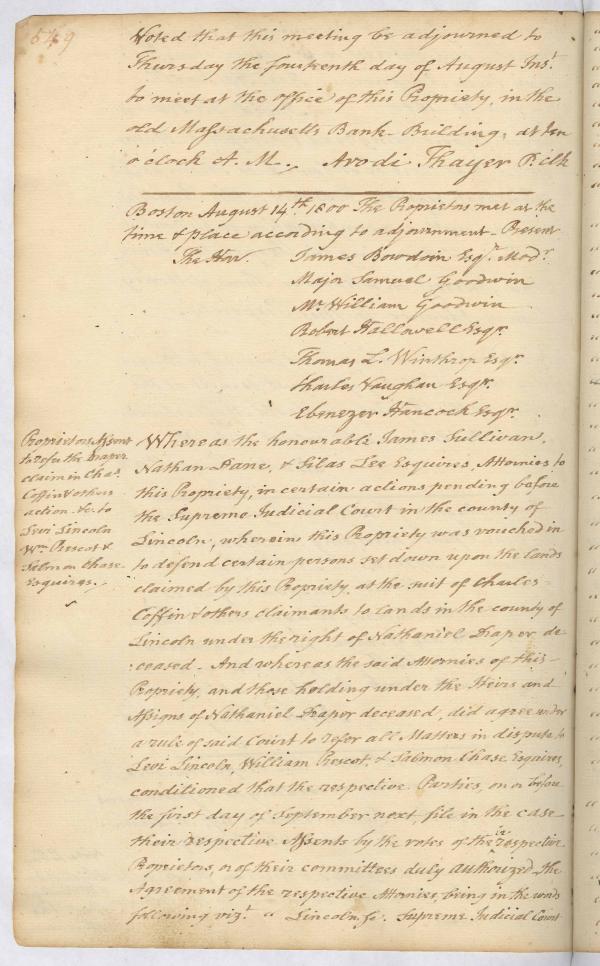 549
Voted that this meeting be adjourned to
Thursday the fourteenth day of August Inst.
to meet at the office of this Propriety, in the
old Massachusetts Bank-Building, at ten
o'clock A. M., Arodi Thayer P. Clk
Boston August 14th. 1800 The Proprietors met at the
time & place according to adjournment. Present
The Hon. James Bowdoin Esqr. Modr.
Major Samuel Goodwin
Mr. William Goodwin
Robert Hallowell Esqr.
Thomas L. Winthrop Esqr.
Charles Vaughan Esqr.
Ebenezer Hancock Esqr.
Proprietors Assent
to refer the Draper
claim in Chas.
Coffin & others
action &c. to
Levi Lincoln
Wm. Prescot &
Salmon Chase
Esquires.
Whereas the honourable James Sullivan,
Nathan Dane, & Silas Lee Esquires, Attornies to
this Propriety, in certain actions pending before
the Supreme Judicial Court in the county of
Lincoln, wherein this Propriety was vouched in
to defend certain persons set down upon the lands
claimed by this Propriety, at the suit of Charles
Coffin & others claimants to lands in the county of
Lincoln under the right of Nathaniel Draper de-
:ceased. And whereas the said Attornies of this
Propriety, and those holding under the Heirs and
Assigns of Nathaniel Draper deceased, did agree under
a rule of said Court to refer all Matters in dispute to
Levi Lincoln, William Prescot, & Salmon Chase Esquires,
conditioned that the respective Parties, on or before
the first day of September next file in the case
their respective Assents by the votes of the respective
Proprietors, or of their committees duly authorized. The
Agreement of the respective Attornies, being in the words
following vizt. " Lincoln, ss. Supreme Judicial Court